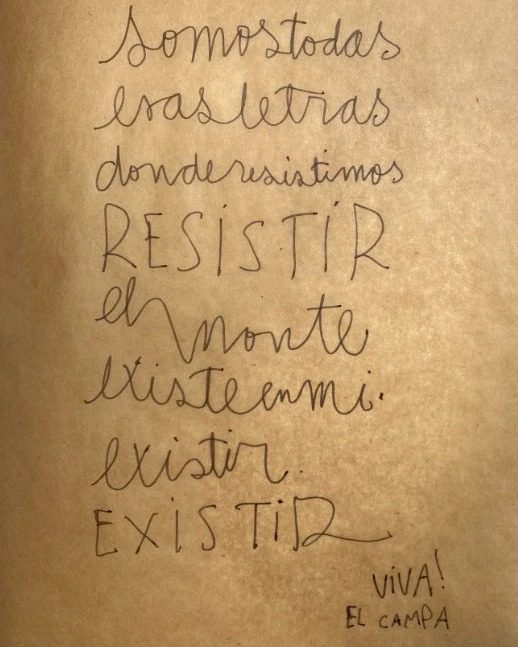 somostodas
esasletras
donderesistimos
RESiSTiR
el monte
existeenmi.
existir.
EXiSTiR
ViVA!
EL CAMPA